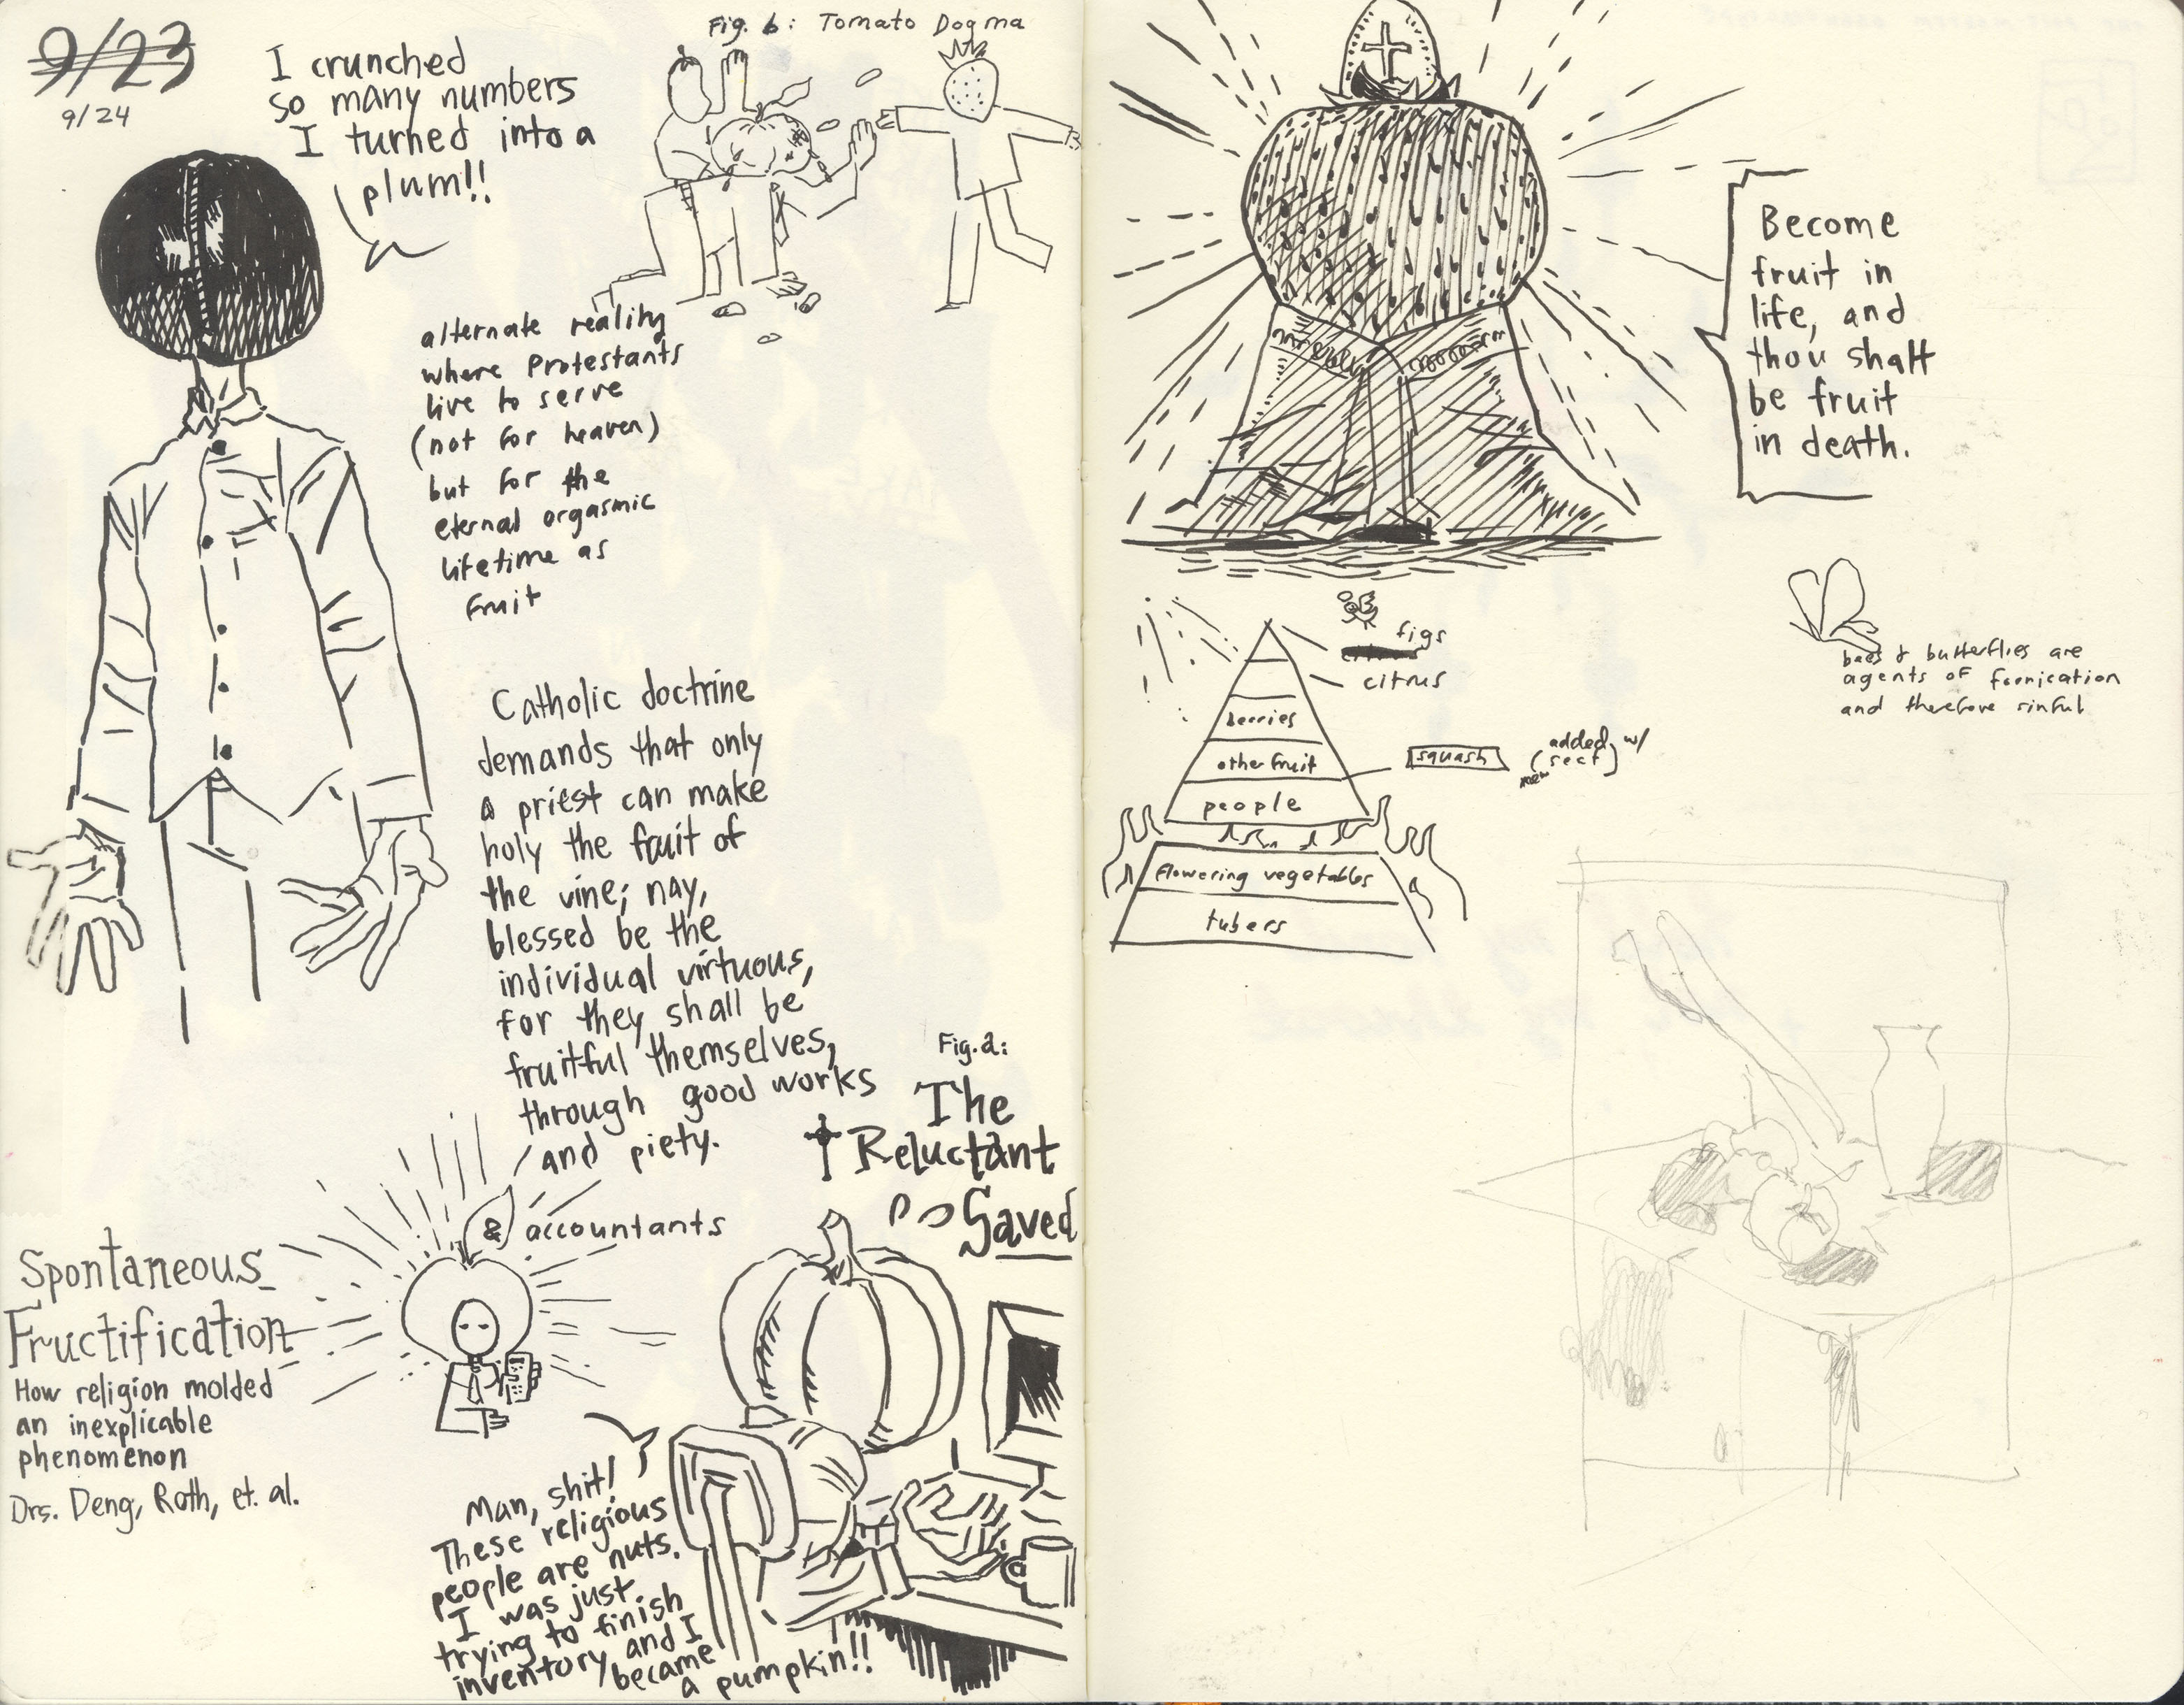 9/23
9/24
I crunched
so many numbers
I turned into a
plum!!
Fig. 6: Tomato Dogma
alternate reality
where Protestants
live to serve
(not for heaven)
but for the
eternal orgasmic
lifetime as
fruit
Catholic doctrine
demands that only
a priest can make
holy the fruit of
the vine; nay,
blessed be the
individual virtuous,
for they shall be
fruitful themselves,
through good works
and piety.
& accountants
Spontaneous
Fructification
How religion molded
an inexplicable
phenomenon
Drs. Deng, Roth, et. al.
Fig. 2:
The
Reluctant
Saved
Man, shit!
These religious
people are nuts.
I was just
trying to finish
inventory and I
became
a pumpkin!!
Become
fruit in
life, and
thou shalt
be fruit
in death.
figs
citrus
citrus
berries
other fruit
people
squash
(added w/
new sect)
flowering vegetables
tubers
bees & butterflies are
agents of fornication
and therefore sinful